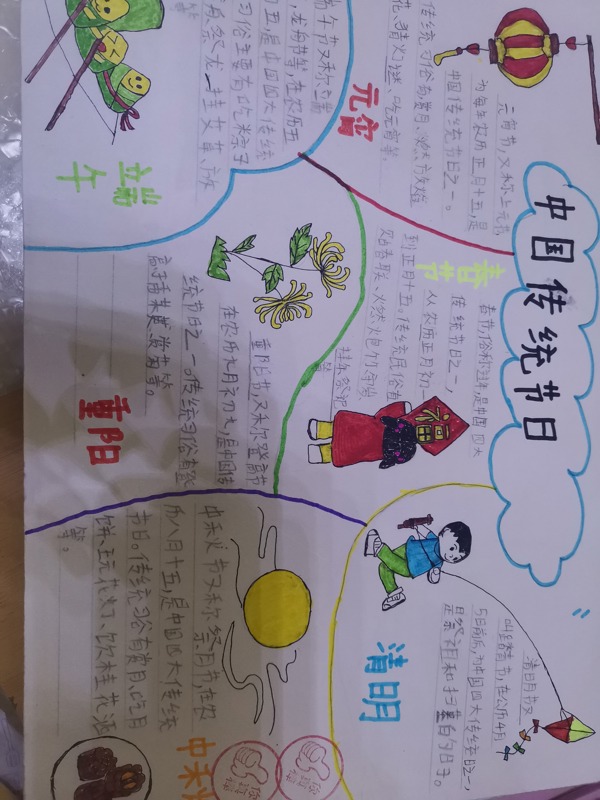 中国传统节日
元宵
元宵节,又称上元节
为每年农历正月十五,是
中国传统节日之一。
传统习俗有赏月、燃放烟
花、猜灯谜、吃元宵等。
春节
春节俗称过年,是中国四大
传统节日之一,
从农历正月初一
到正月十五。传统民俗有
贴春联、燃烟
清明
清明节又
叫踏青节,在公历4月
5日前后,为中国四大传统节日之一,
是祭祖和扫墓的日子。
端午
端午节又称
龙舟节等,在农历五
是中国四大传统
习俗主要有吃粽子
挂艾草、放
等
重阳
重阳节,又称登高节
在农历九月初九,是中国传
统节日之一。传统习俗有登
高、赏菊等。
中秋
中秋节又称祭月节在农
历八月十五,是中国四大传统
节日。传统习俗有赏月、吃月
饼、玩花灯、饮桂花酒
等。